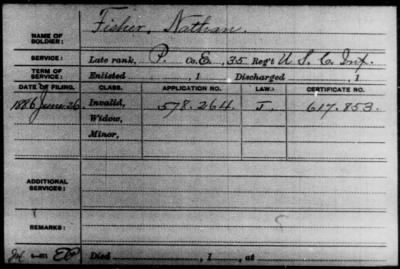 Fisher, Nathan.
NAME OF SOLDIER:
SERVICE: Late rank, P. Co. E, 35 Reg't U. S. C. Inf.
TERM OF SERVICE: Enlisted , 1 Discharged , 1
DATE OF FILING. CLASS. APPLICATION NO. LAW. CERTIFICATE NO.
1886 June 26 Invalid, 578.264 J. 617.853.
Widow,
Minor,
ADDITIONAL SERVICES:
REMARKS:
Died , 1 , at